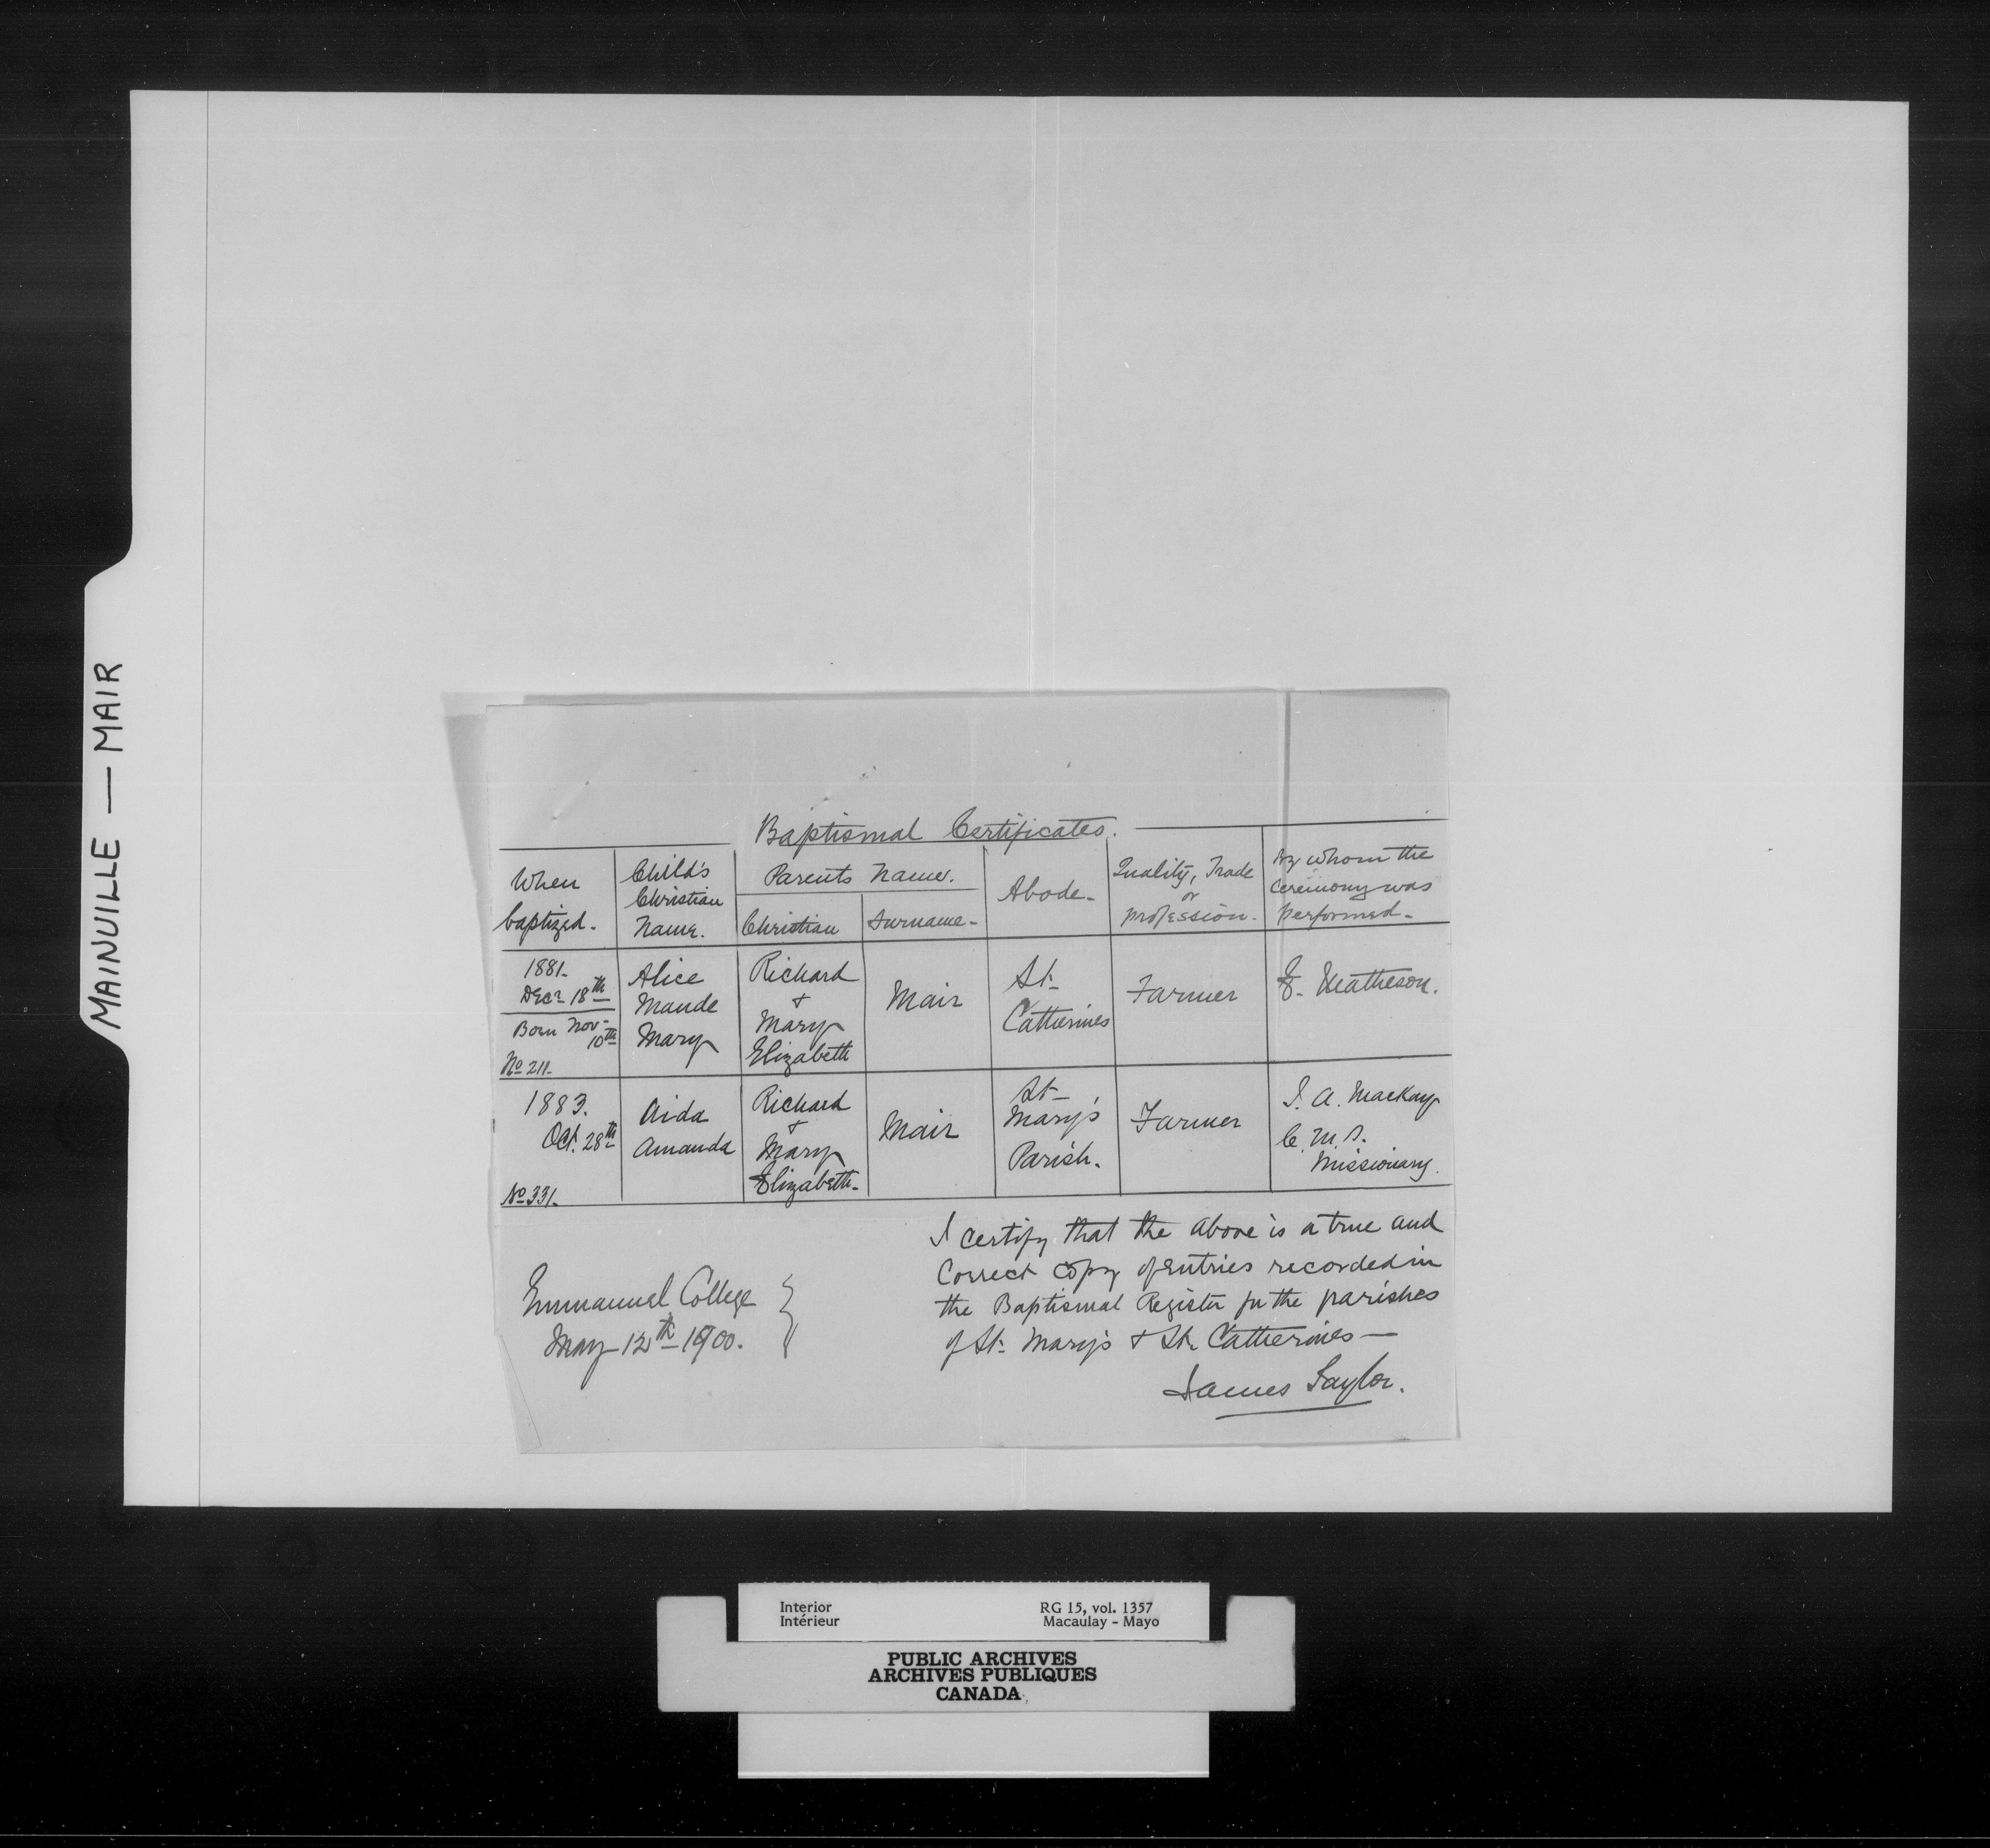 MAINVILLE — MAIR
Baptismal Certificates.
When
baptized.
Child's
Christian
Name.
Parents Name.
Christian
Surname
Abode
Quality, Trade
or
profession.
By whom the
ceremony was
performed.
1881.
Decr 18th
Born Nov.
10th
No 211.
Alice
Maude
Mary
Richard
+
Mary
Elizabeth
Mair
St.
Catherines
Farmer
E. Matheson.
1883.
Oct. 28th
No 331.
Aida
Amanda
Richard
+
Mary
Elizabeth
Mair
St
Mary's
Parish.
Farmer
J. A. Mackay
C. M. S.
Missionary.
I certify that the above is a true and
Correct copy of Entries recorded in
the Baptismal Register for the parishes
of St. Mary's + St. Catherines —
James Taylor.
Emmanuel College
May 12th 1900.
Interior
Intérieur
RG 15, vol. 1357
Macaulay - Mayo
PUBLIC ARCHIVES
ARCHIVES PUBLIQUES
CANADA